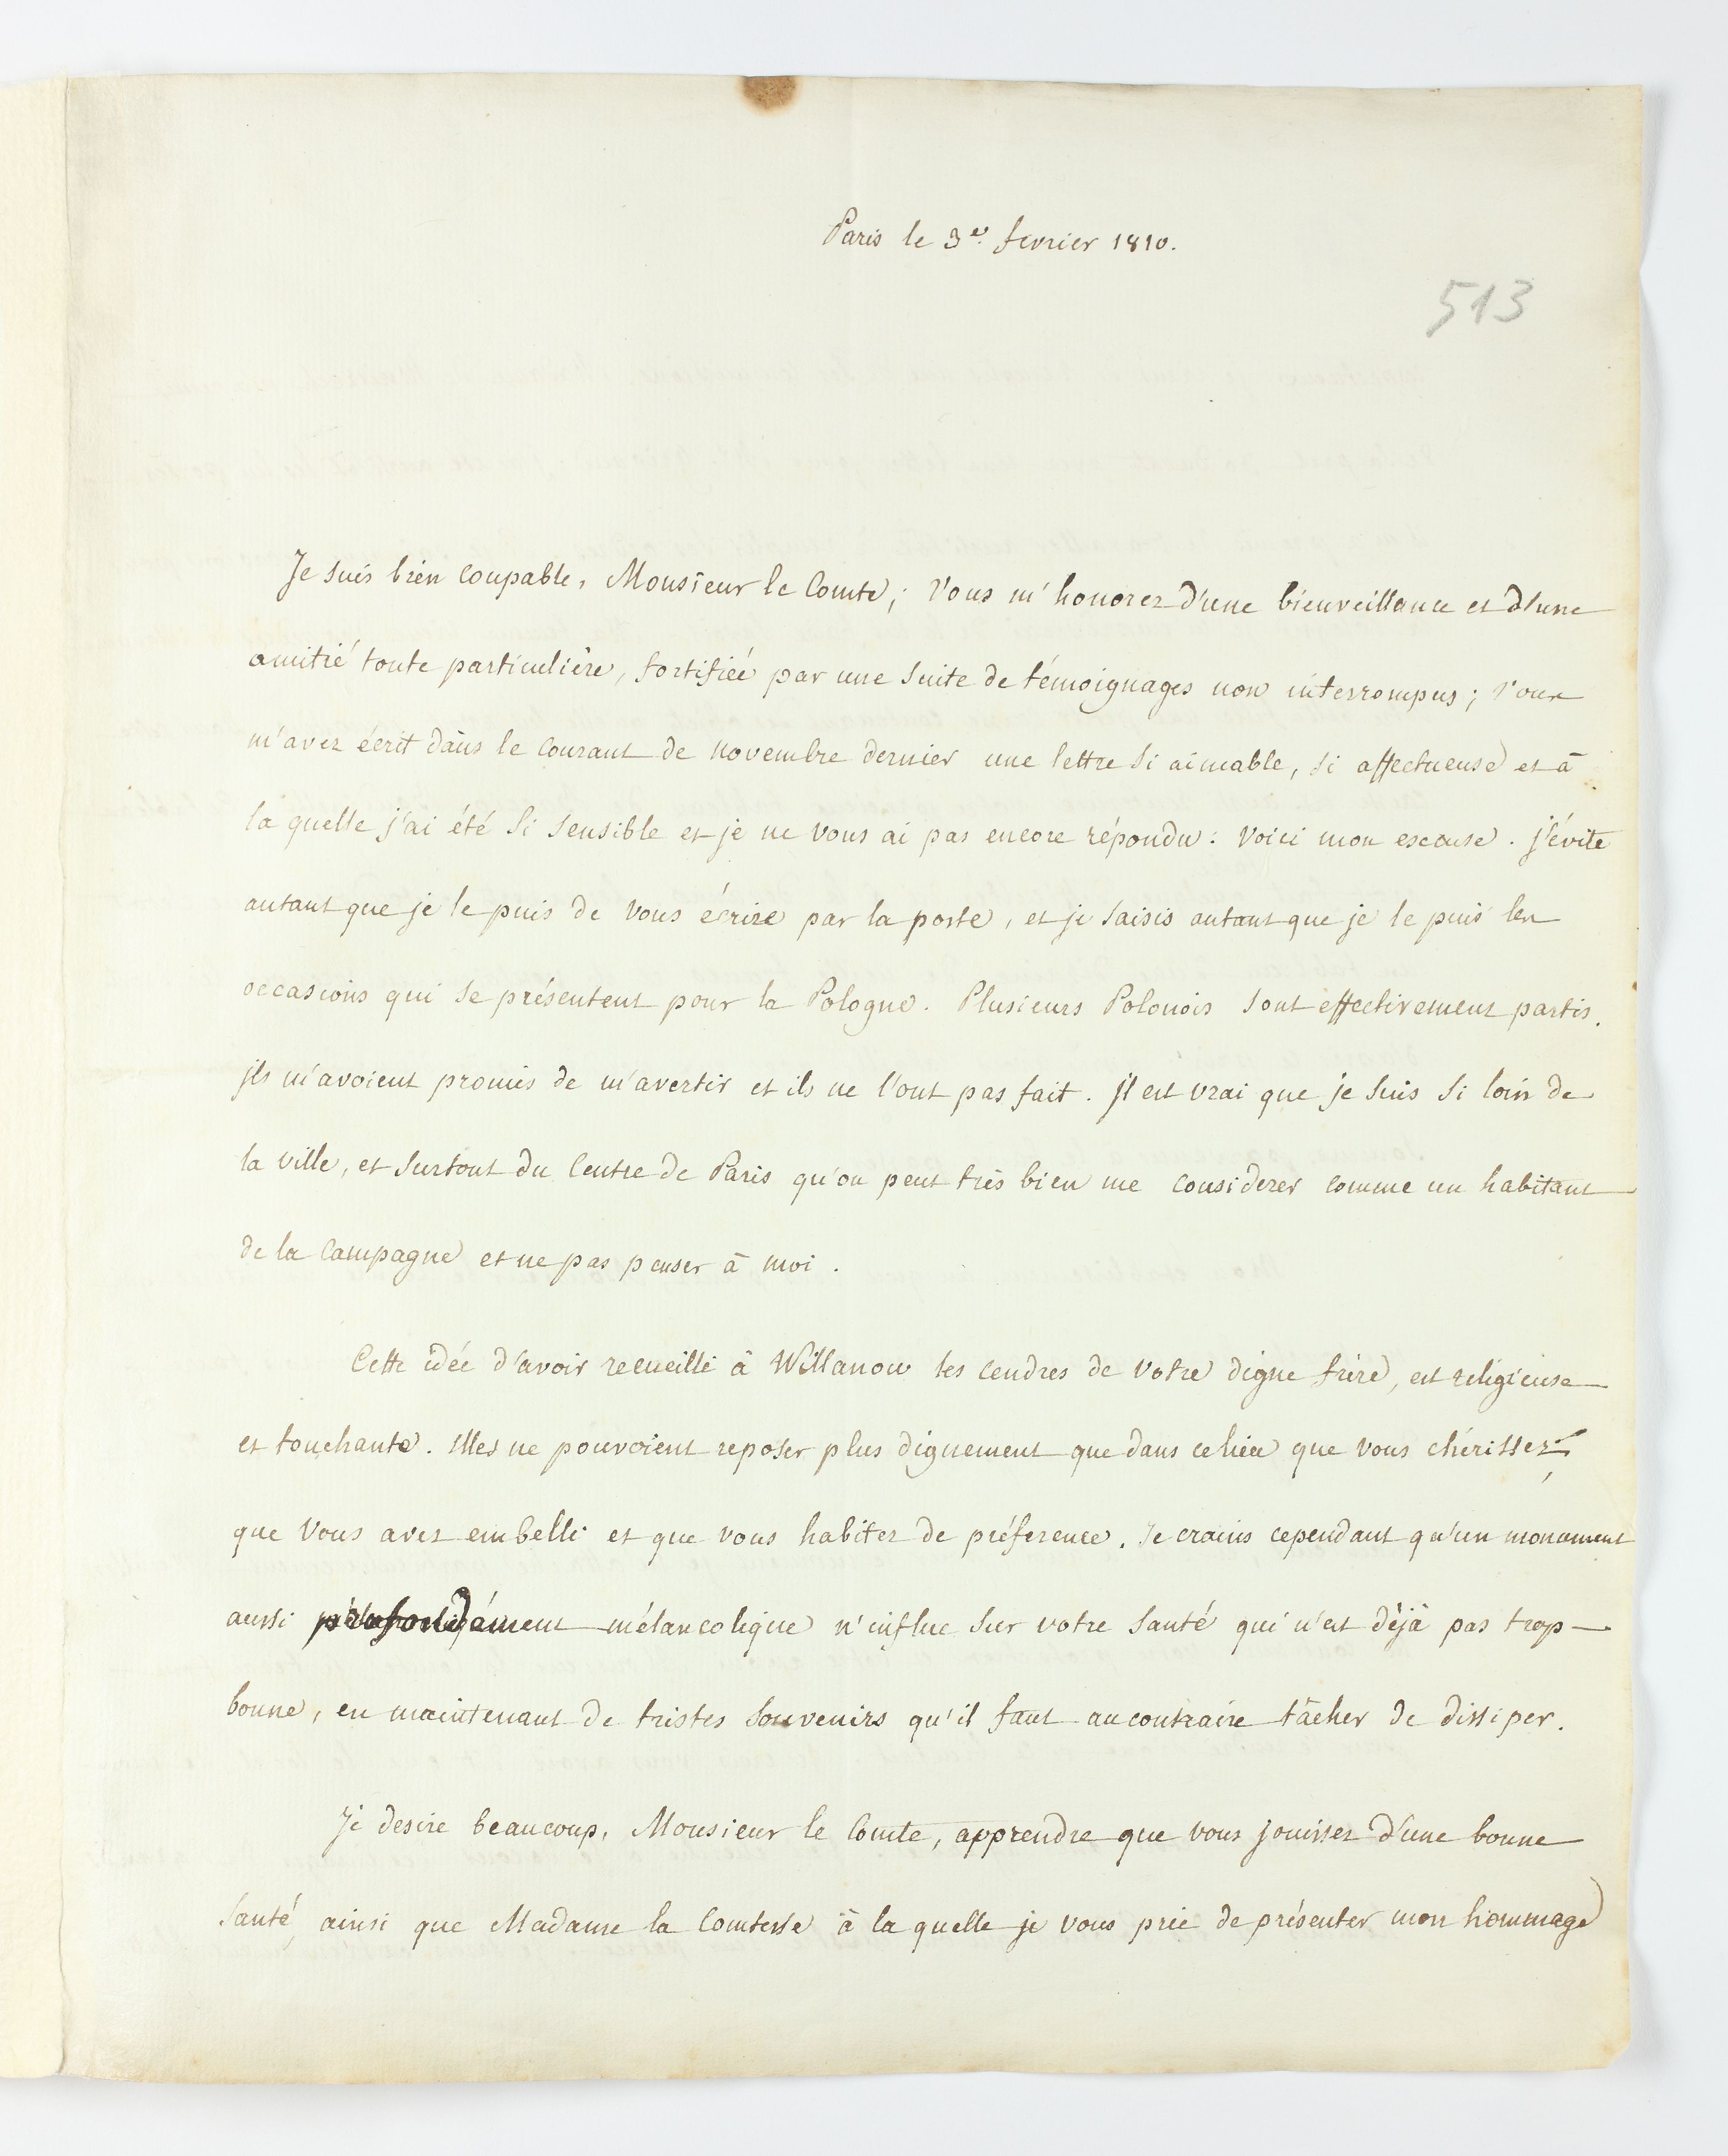 Paris le 3e. fevrier 1810.
513
Je suis bien coupable, Monsieur le Comte; Vous m'honorez d'une bienveillance et d'une
amitié toute particulière, fortifiée par une suite de témoignages non interrompus; vous
m'avez écrit dans le courant de novembre dernier une lettre si aimable, si affectueuse et à
la quelle j'ai été si sensible et je ne vous ai pas encore répondu: Voici mon escuse. j'évite
autant que je le puis de vous écrire par la poste, et je saisis autant que je le puis les
occasions qui se présentent pour la Pologne. Plusieurs Polonois sont effectivement partis.
jls m'avoient promis de m'avertir et ils ne l'ont pas fait. jl est vrai que je suis si loin de
la ville, et surtout du Centre de Paris qu'on peut très bien me considerer comme un habitant
de la Campagne et ne pas penser à moi.
Cette idée d'avoir recueilli à Willanow les cendres de votre digne frère, est religieuse
et touchante. Elles ne pouvoient reposer plus dignement que dans ce lieu que vous chérissez,
que vous avez embelli et que vous habitez de préference. Je crains cependant qu'un monument
aussi profondément mélancolique n'influe sur votre santé qui n'est déjà pas trop
bonne, en maintenant de tristes souvenirs qu'il faut au contraire tâcher de dissiper.
Je desire beaucoup, Monsieur le Comte, apprendre que vous jouissez d'une bonne
santé, ainsi que Madame la Comtesse à la quelle je vous prie de présenter mon hommage